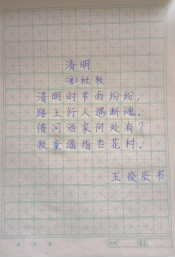 清明
唐 杜牧
清明时节雨纷纷，
路上行人遇断魂。
借问酒家何处有？
牧童遥指杏花村。
王俊辰书